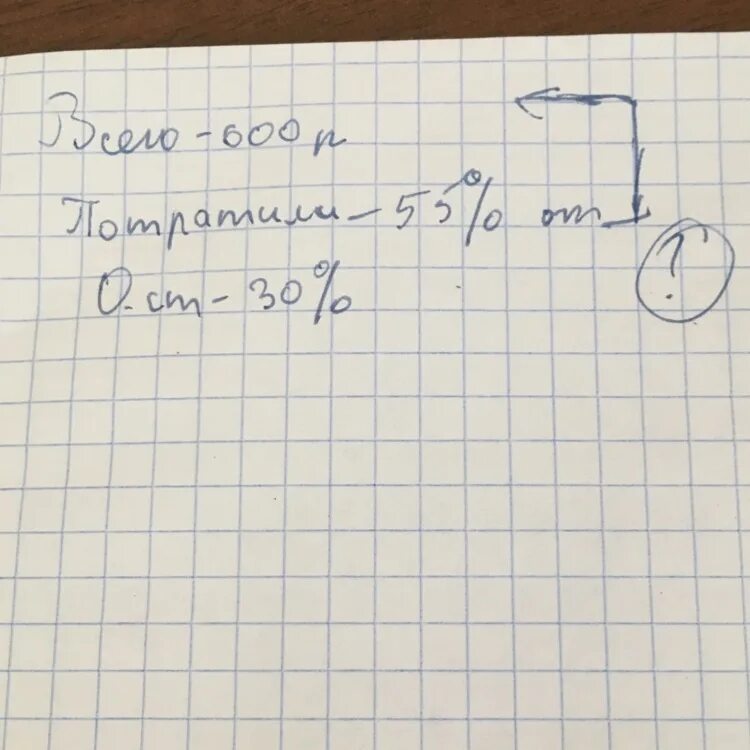 Всего - 600 р
Потратили - 55% от
?
Ост - 30%